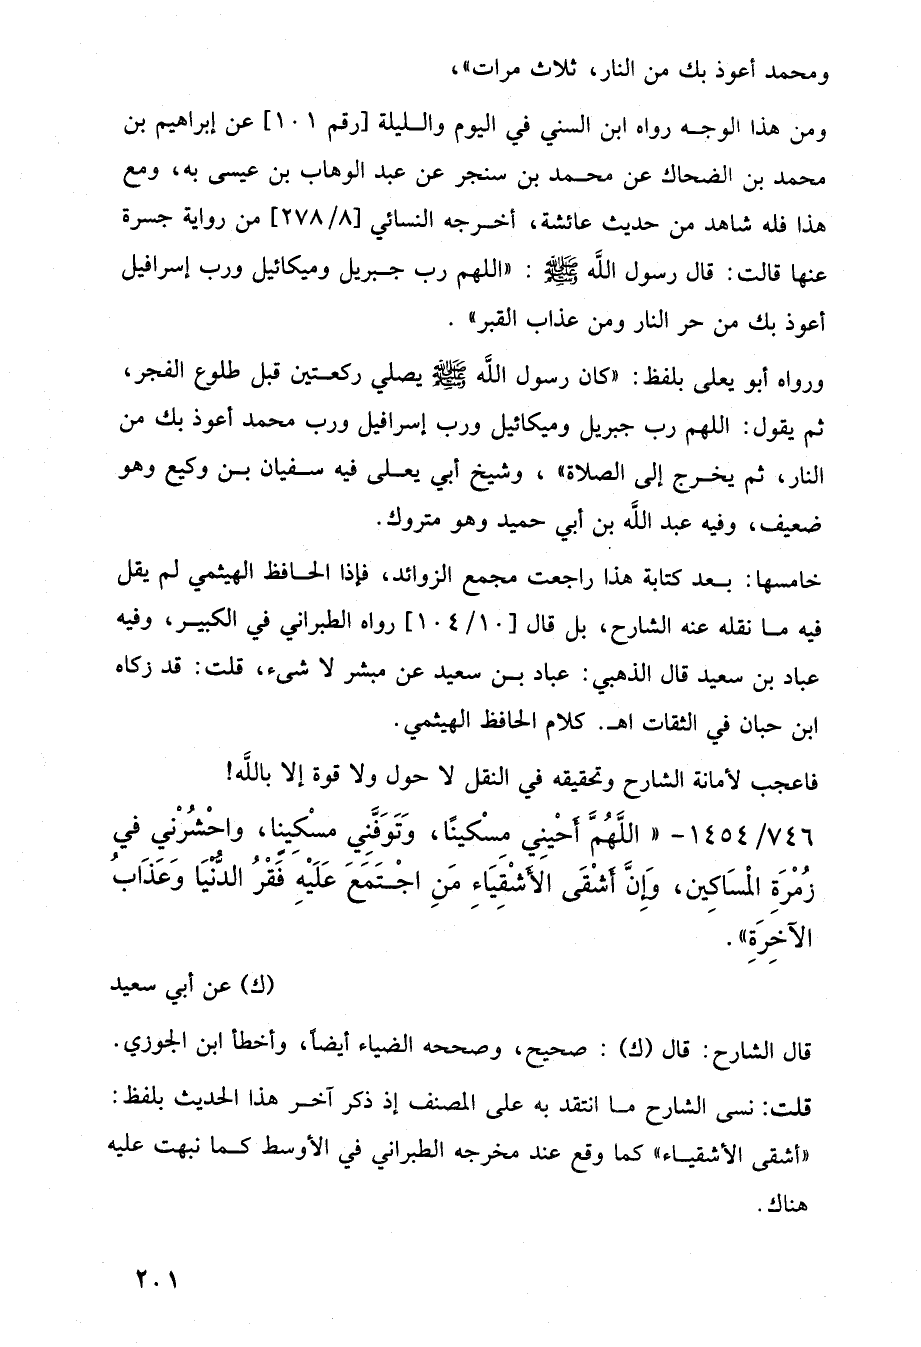 ومحمد أعوذ بك من النار، ثلاث مرات»،
ومن هذا الوجه رواه ابن السني في اليوم والليلة [رقم ١٠١] عن إبراهيم بن
محمد بن الضحاك عن محمد بن سنجر عن عبد الوهاب بن عيسى به، ومع
هذا فله شاهد من حديث عائشة، أخرجه النسائي [٢٧٨/٨] من رواية جسرة
عنها قالت: قال رسول اللَّه ﷺ : «اللهم رب جبريل وميكائيل ورب إسرافيل
أعوذ بك من حر النار ومن عذاب القبر» .
ورواه أبو يعلى بلفظ: «كان رسول اللَّه ﷺ يصلي ركعتين قبل طلوع الفجر،
ثم يقول: اللهم رب جبريل وميكائيل ورب إسرافيل ورب محمد أعوذ بك من
النار، ثم يخرج إلى الصلاة» ، وشيخ أبي يعلى فيه سفيان بن وكيع وهو
ضعيف، وفيه عبد اللَّه بن أبي حميد وهو متروك.
خامسها: بعد كتابة هذا راجعت مجمع الزوائد، فإذا الحافظ الهيثمي لم يقل
فيه ما نقله عنه الشارح، بل قال [١٠٤/١٠] رواه الطبراني في الكبير، وفيه
عباد بن سعيد قال الذهبي: عباد بن سعيد عن مبشر لا شىء، قلت: قد زكاه
ابن حبان في الثقات اهـ. كلام الحافظ الهيثمي.
فاعجب لأمانة الشارح وتحقيقه في النقل لا حول ولا قوة إلا باللَّه!
١٤٥٤/٧٤٦- « اللَّهُمَّ أَحْيِنِي مِسْكِينًا، وَتَوَفَّنِي مِسْكِينِا، واحْشُرْنِي فِي
زُمْرَةِ الْمَسَاكِينِ، وَإِنَّ أَشْقَى الأَشْقِيَاءِ مَنِ اجْتَمَعَ عَلَيْهِ فَقْرُ الدُّنْيَا وَعَذَابُ
الآخِرَةِ» .
(ك) عن أبي سعيد
قال الشارح: قال (ك) : صحيح، وصححه الضياء أيضاً، وأخطأ ابن الجوزي.
قلت: نسى الشارح ما انتقد به على المصنف إذ ذكر آخر هذا الحديث بلفظ:
«أشقى الأشقياء» كما وقع عند مخرجه الطبراني في الأوسط كما نبهت عليه
هناك.
٢٠١